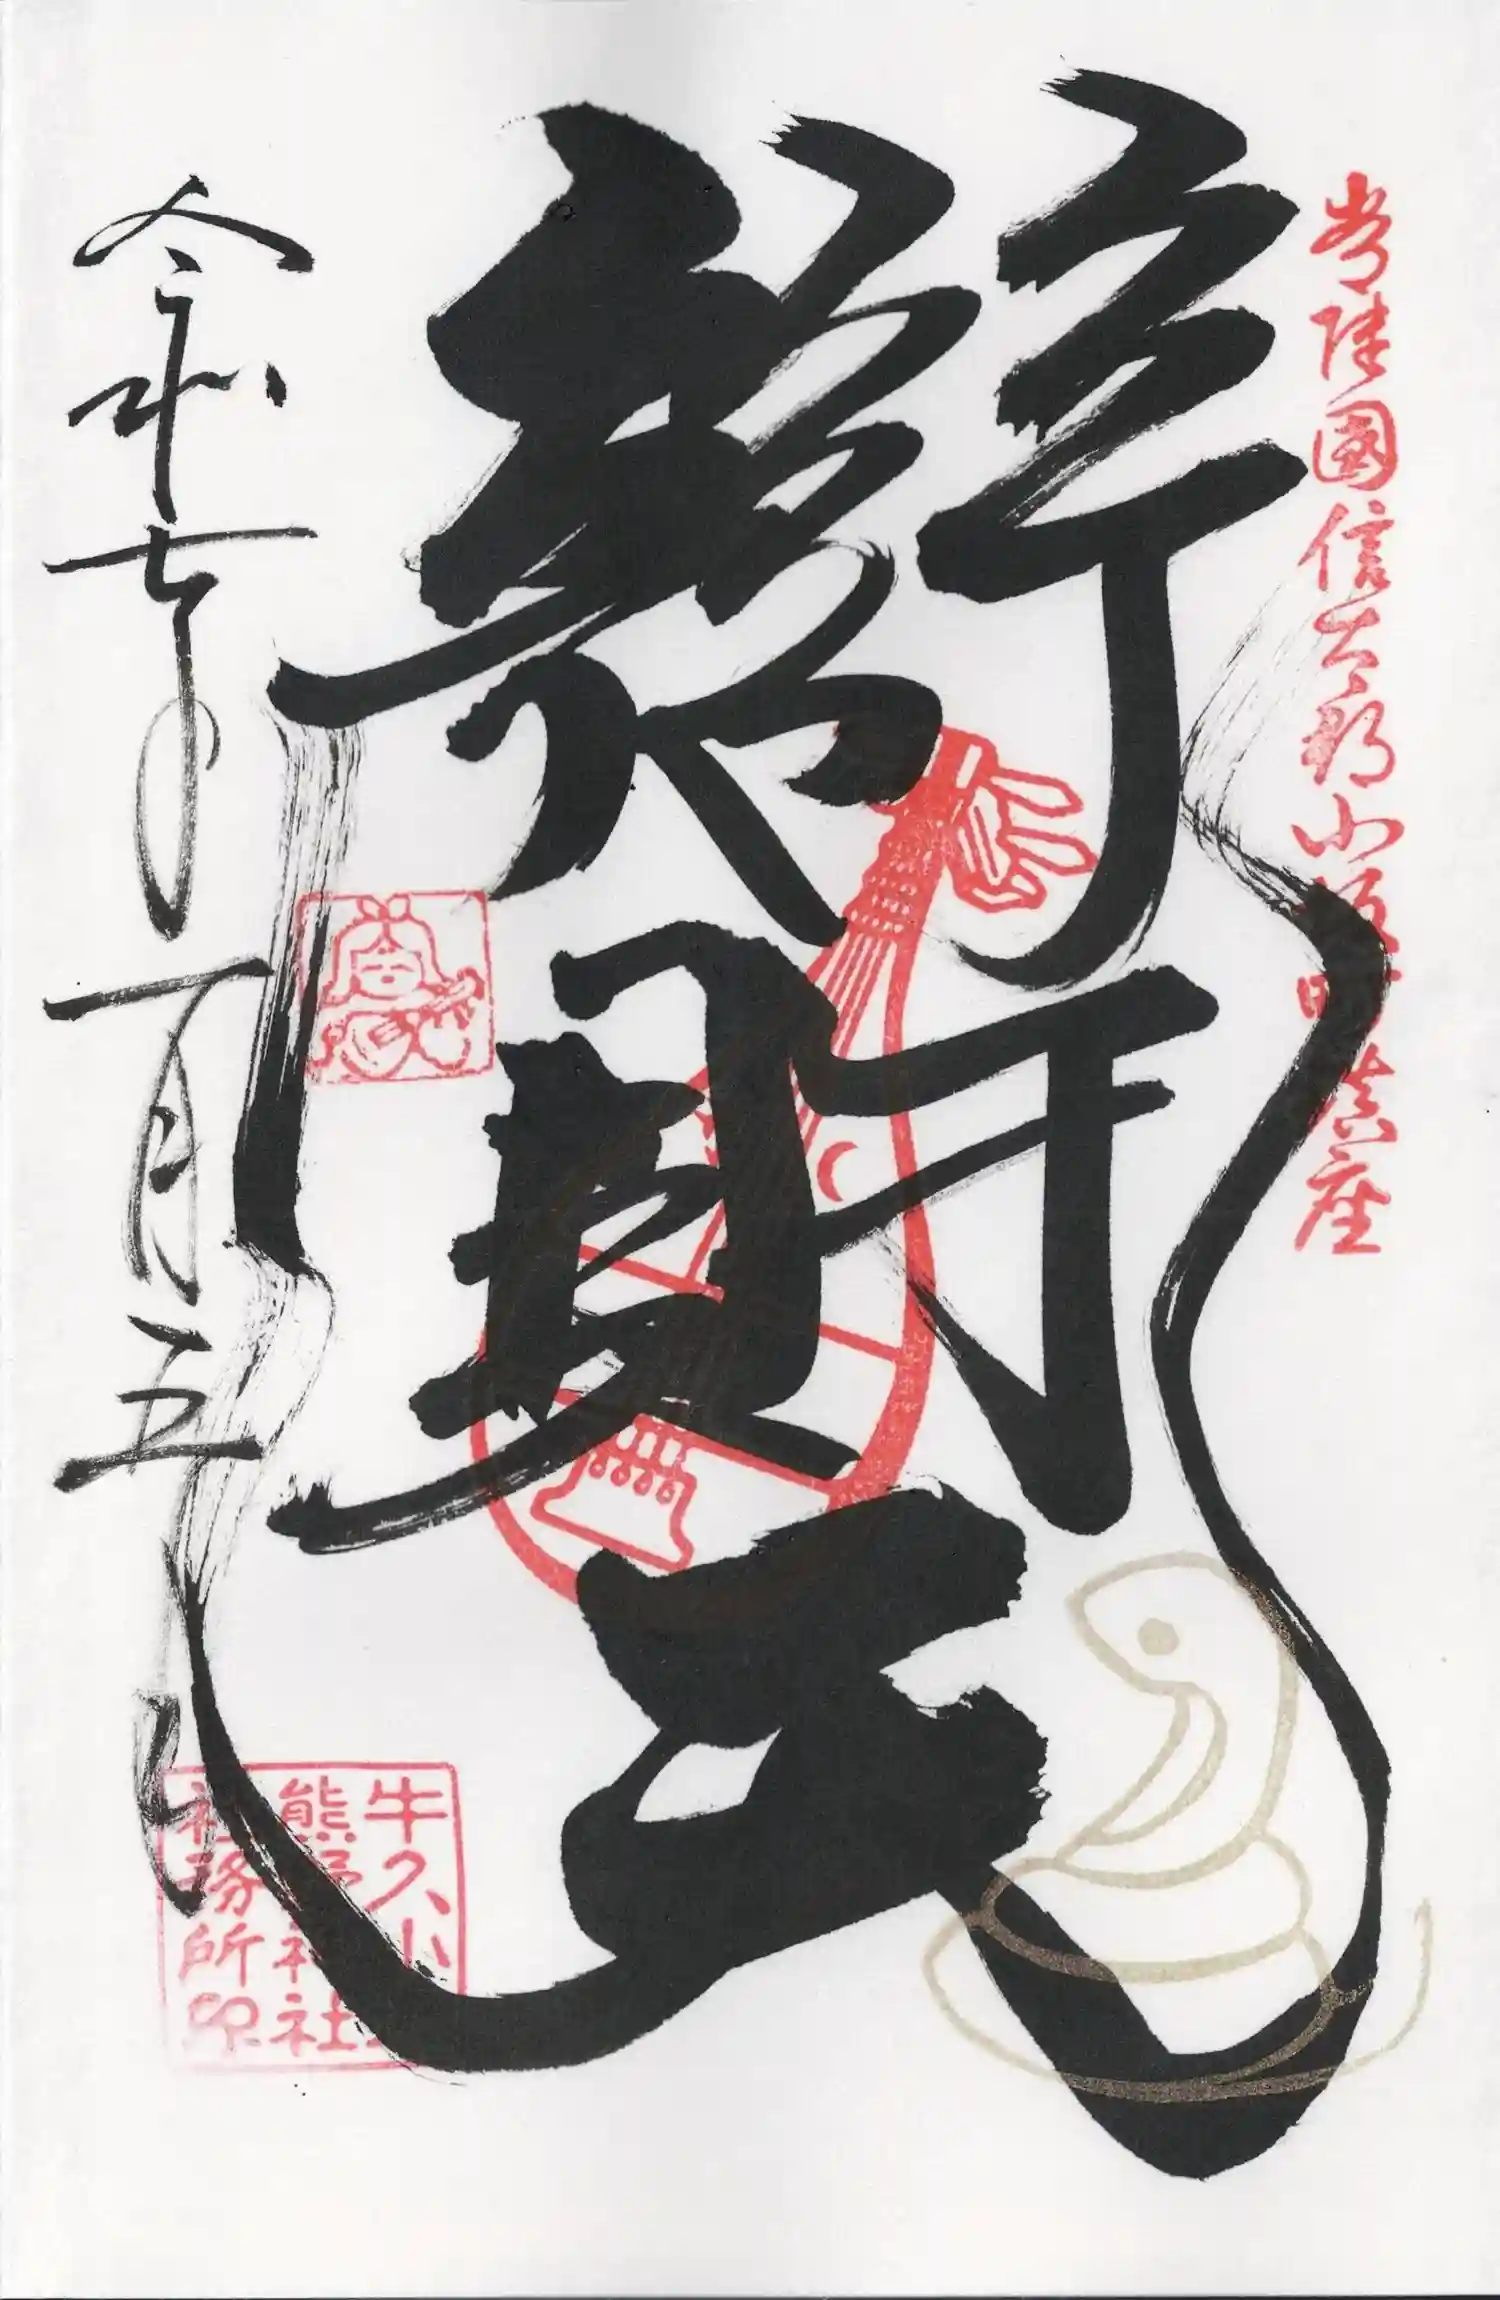 常陸國信太郡小坂町鎮座
辯財天
令和七年一月五日
牛久小坂
熊野神社
社務所印